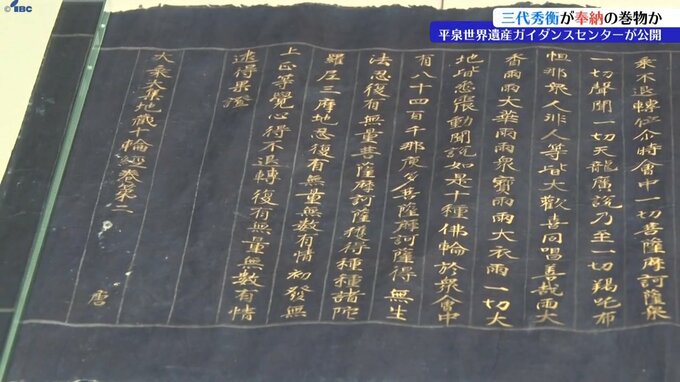 IBC
三代秀衡が奉納の巻物か
平泉世界遺産ガイダンスセンターが公開
乘不退轉位尒時會中一切菩薩摩訶薩衆
一切聲聞一切天龍廣說乃至一切羯吒布
怛那衆人非人等皆大歡喜同唱善哉雨大
香雨雨大華雨雨衆寳雨雨大衣雨一切大
地皆悉震動聞說如是十種佛輪於衆會中
有八十四百千那庾多菩薩摩訶薩得無生
法忍復有無量菩薩摩訶薩獲得種種諸陀
羅尼三摩地忍復有無量無數有情初發無
上正等覺心得不退轉復有無量無數有情
逮得果證
大乘大集地藏十輪經卷第二
唐